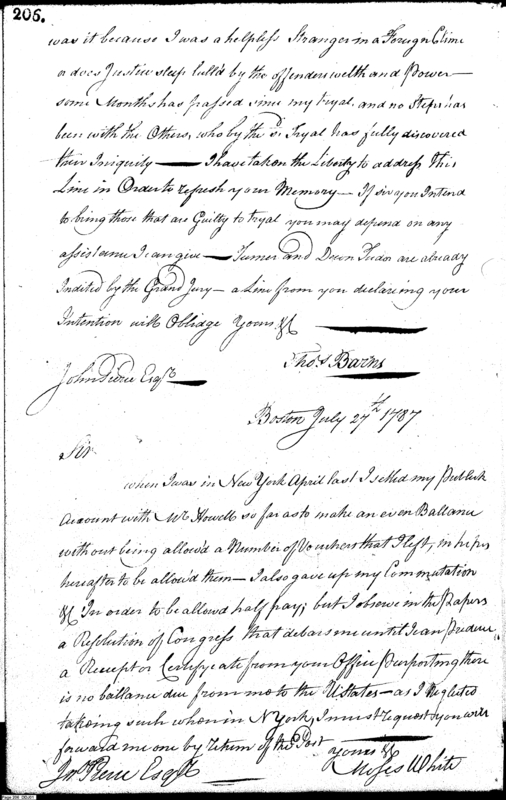 206.
was it because I was a helpless Stranger in a Foreign Clime
or does Justice sleep lull'd by the offenders welth and Power —
some Months has passed since my tryal. and no Steps has
been with the Others, who by the sd. Tryal has fully discovered
their Iniquity — I have taken the Liberty to address This
Line in Order to refresh your Memory — If sir you Intend
to bring those that are Guilty to tryal you may depend on any
assistance I can give — Turner and Deven Tudor are already
Indited by the Grand Jury — a Line from you declareing your
Intention will Oblidge Yours &c
Thos. Barns
John Pierce Esqr.
Boston July 27th 1787
Sir
when I was in New York April last I setled my Publick
Account with Mr Howell so far as to make an even Ballance
without being allow'd a Number of Vouchers that I left, in hopes
hereafter to be allow'd them — I also gave up my Commutation
&c In order to be allowd half pay; but I observe in the Papers
a Resolution of Congress that debars me until I can Produce
a Recept or Certifycate from your Office Purporting there
is no ballance due from me to the U States — as I Neglected
takeing such when in N York, I must request you will
forward me one by return of the Post
Yours &c
Moses White
Jno Pierce Esqr